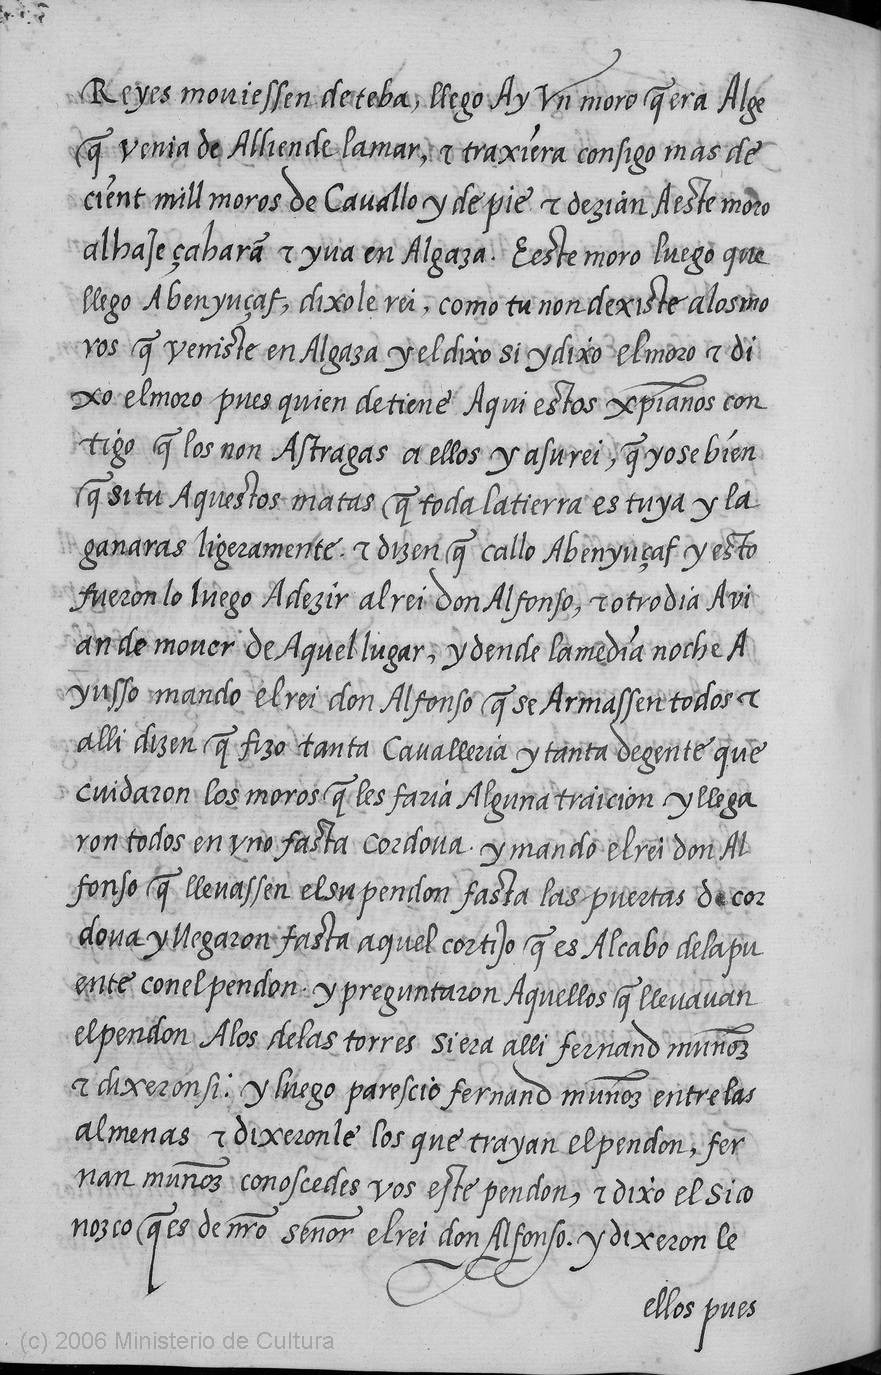 Reyes mouiessen de teba, llego Ay Vn moro q̃ era Alge
q̃ venia de Alliende la mar, ⁊ traxiera consigo mas de
cient mill moros de Cauallo y de pie ⁊ dezian A este moro
alhaje çaharã ⁊ yua en Algaza. E este moro luego que
llego Abenyuçaf, dixole rei, como tu non dexiste a los mo
ros q̃ veniste en Algaza y el dixo si y dixo el moro ⁊ di
xo el moro pues quien detiene Aqui estos xp̃ianos con
tigo q̃ los non Astragas a ellos y a su rei, q̃ yo se bien
q̃ si tu Aquestos matas q̃ toda la tierra es tuya y la
ganaras ligeramente. ⁊ dizen q̃ callo Abenyuçaf y esto
fueron lo luego A dezir al rei don Alfonso, ⁊ otro dia Avi
an de mouer de Aquel lugar, y dende la media noche A
yusso mando el rei don Alfonso q̃ se Armassen todos ⁊
alli dizen q̃ fizo tanta Caualleria y tanta de gente que
cuidaron los moros q̃ les faria Alguna traicion y llega
ron todos en vno fasta cordoua. y mando el rei don Al
fonso q̃ lleuassen el su pendon fasta las puertas de cor
doua y llegaron fasta aquel cortijo q̃ es Al cabo de la pu
ente con el pendon. y preguntaron Aquellos q̃ lleuauan
el pendon A los de las torres si era alli fernand muñoz
⁊ dixeron si: y luego parescio fernand muñoz entre las
almenas ⁊ dixeronle los que trayan el pendon, fer
nan muñoz conoscedes vos este pendon, ⁊ dixo el si co
nozco q̃ es de nr̃o señor el rei don Alfonso. y dixeron le
ellos pues
(c) 2006 Ministerio de Cultura